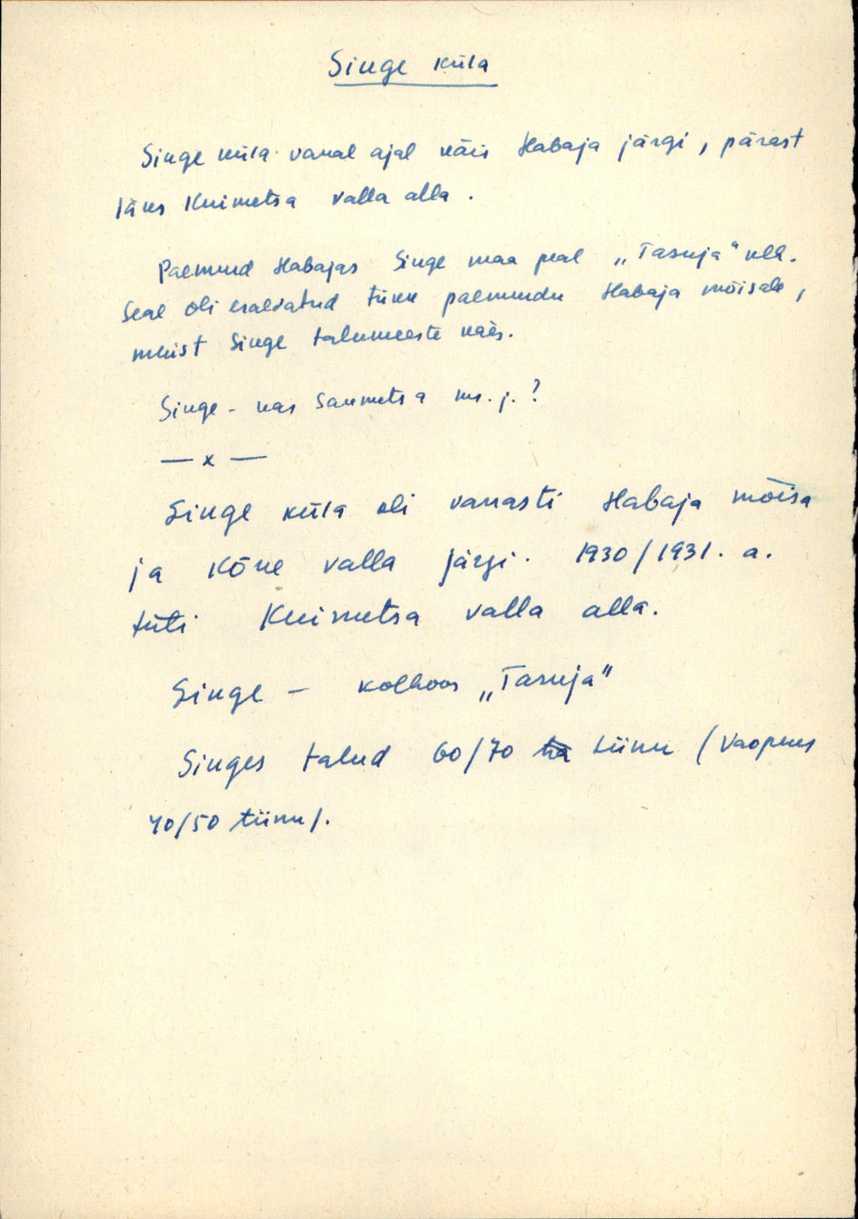 Singe küla
Singe küla vanal ajal käis Habaja järgi, pärast
läks Kuimetsa valla alla.
Paemurd Habajas Singe maa peal „Tasuja" kll.
Seal oli eraldatud tükk paemurdu Habaja mõisale,
muist Singe talumeeste käes.
Singe - kas Saumetsa mr. j.?
— x —
Singe küla oli vanasti Habaja mõisa
ja Kõue valla järgi. 1930/1931. a.
tüti Kuimetsa valla alla.
Singe — kolhoos „Tasuja"
Singes talud 60/70 tiinu (Vaopere
40/50 tiinu).